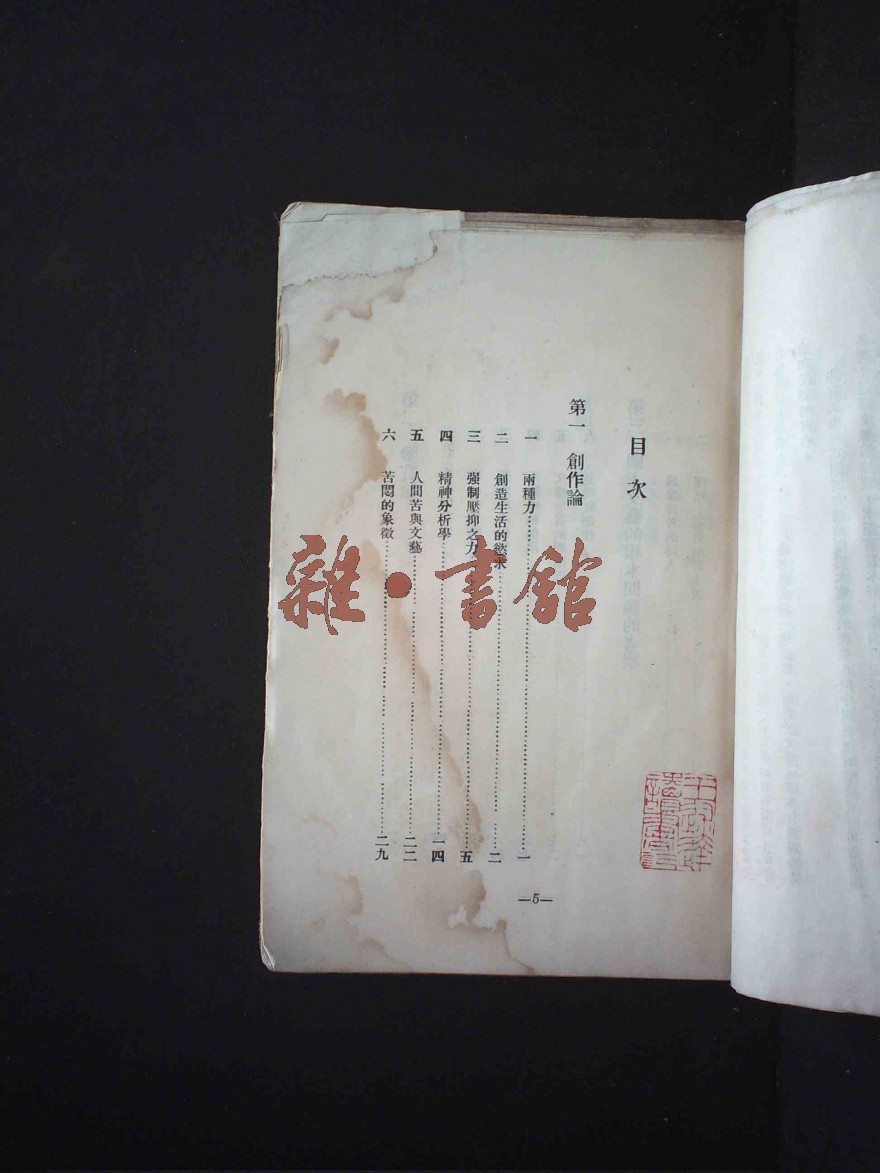 目次
第一 創作論
一 兩種力……一
二 創造生活的慾求……二
三 强制壓抑之力……五
四 精神分析學……一四
五 人間苦與文藝……二二
六 苦悶的象徵……二九
—5—
雜·書館